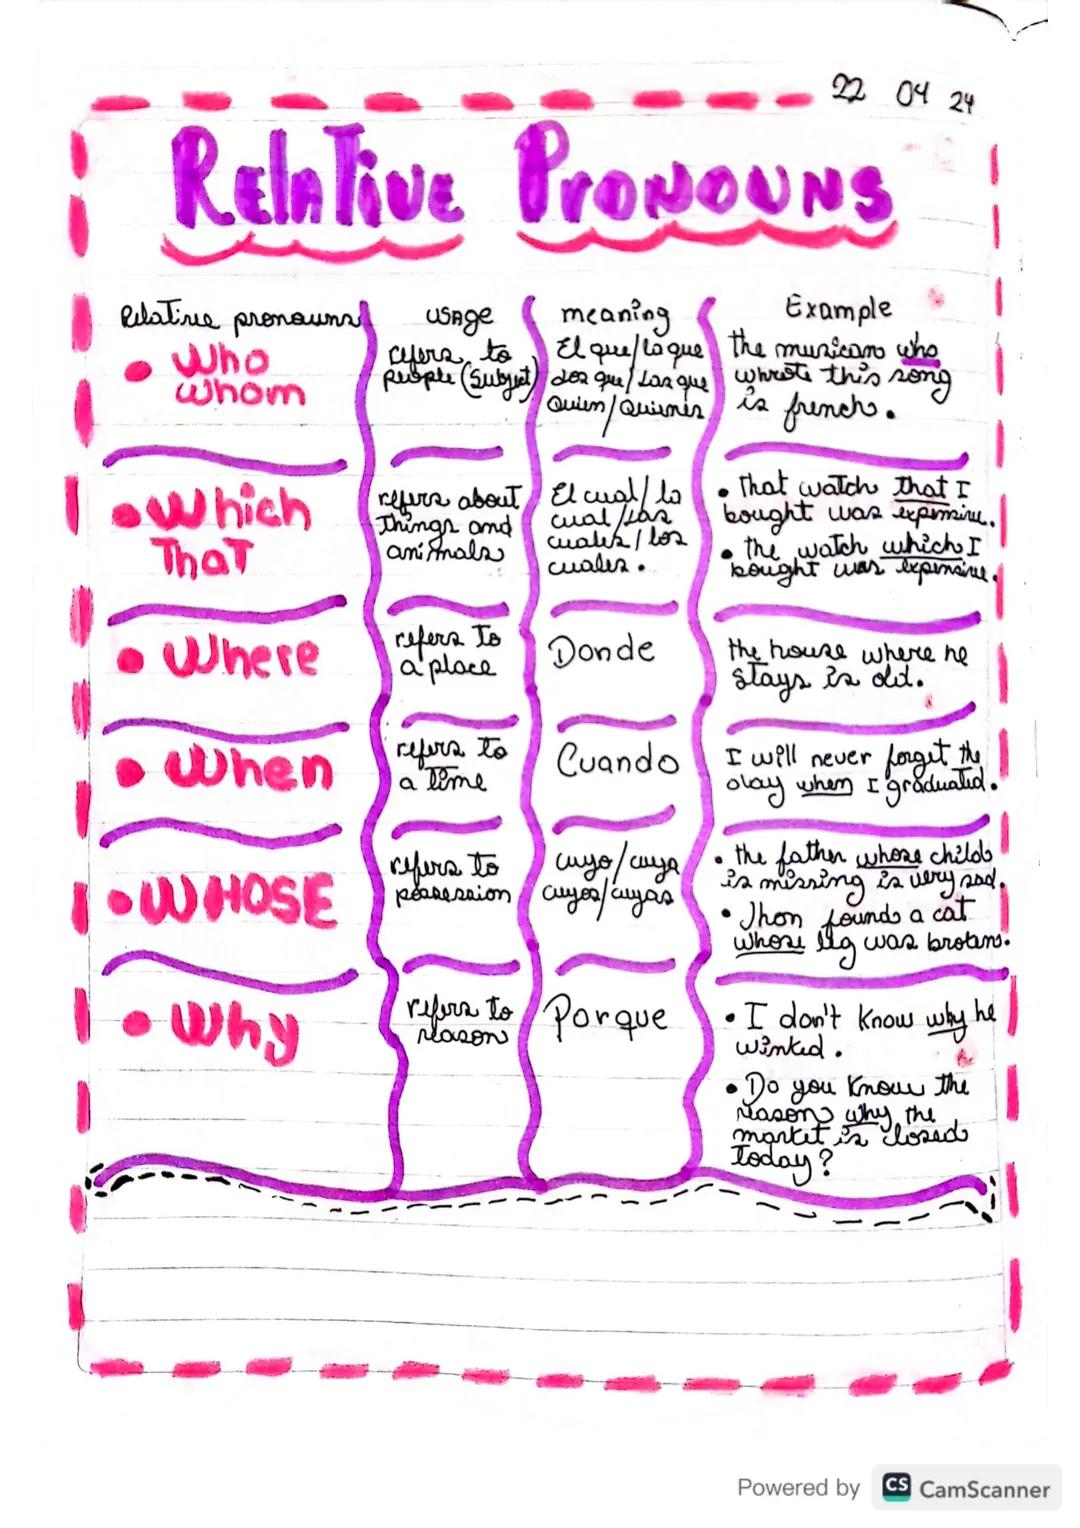 22 04 24
Relative Pronouns
Relative pronouns
usage
meaning
Example
Who
whom
refers to
people (subject)
El que/la que
Los que/Las que
Quien/Quienes
the musican who
whrote this song
is french.
Which
That
refers about
things and
animals
El cual/la
cual/las
cuales/los
cuales.
That watch that I
bought was expensive.
the watch which I
bought was expensive.
Where
refers to
a place
Donde
the house where he
stays is old.
When
refers to
a time
Cuando
I will never forget the
day when I graduated.
WHOSE
refers to
possession
cuyo/cuya
cuyos/cuyas
the father whose childs
is missing is very sad.
Jhon founds a cat
whose leg was broken.
Why
refers to
reason
Porque
I don't know why he
winked.
Do you know the
reason why the
market is closed
today?
Powered by CS CamScanner